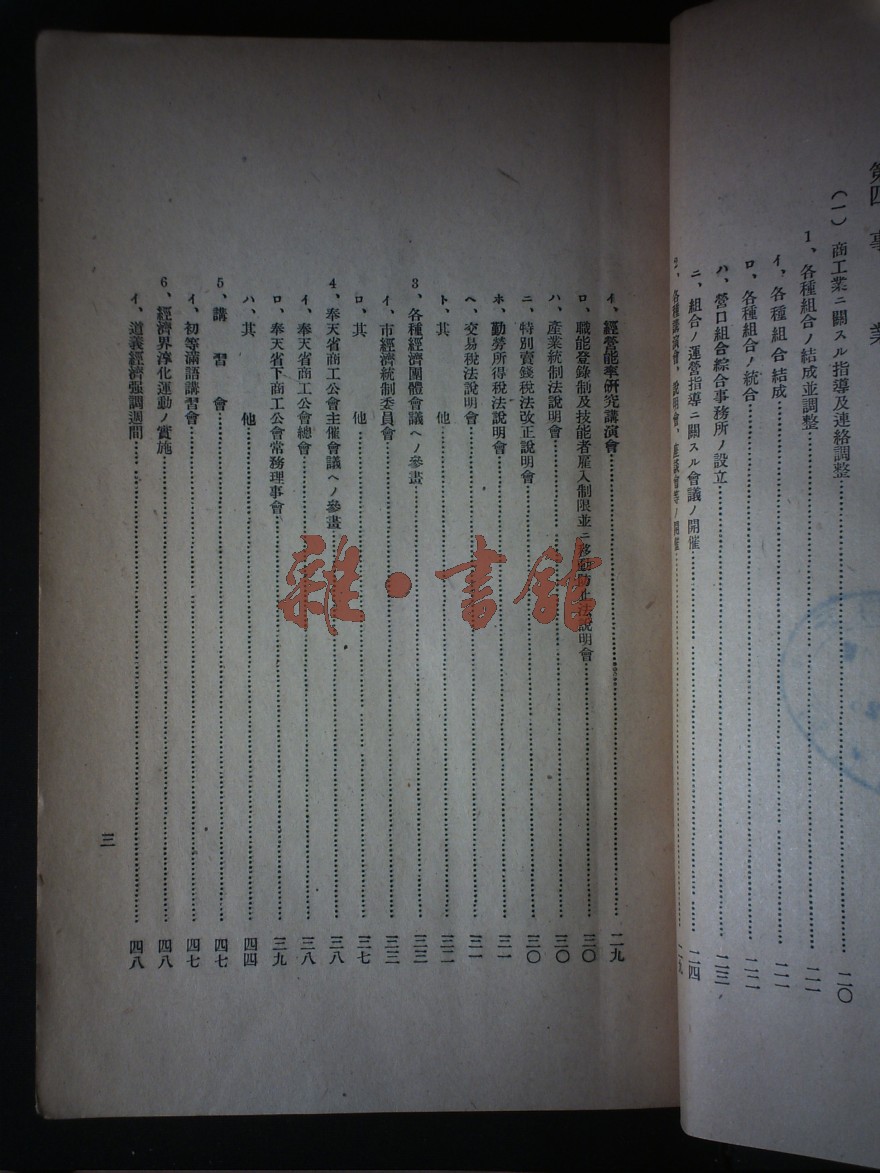 第四 事業
(一) 商工業ニ關スル指導及連絡調整…………二〇
1、各種組合ノ結成並調整…………二一
イ、各種組合結成…………二一
ロ、各種組合ノ統合…………二二
ハ、營口組合綜合事務所ノ設立…………二三
ニ、組合ノ運營指導ニ關スル會議ノ開催…………二四
各種講演會、說明會、
イ、經營能率研究講演會…………二九
ロ、職能登錄制及技能者雇入制限並ニ移動防止法說明會…………三〇
ハ、產業統制法說明會…………三〇
ニ、特別賣錢稅法改正說明會…………三〇
ホ、勤勞所得稅法說明會…………三一
ヘ、交易稅法說明會…………三一
ト、其他…………三二
3、各種經濟團體會議ヘノ參畫…………三三
イ、市經濟統制委員會…………三三
ロ、其他…………三七
4、奉天省商工公會主催會議ヘノ參畫…………三八
イ、奉天省商工公會總會…………三八
ロ、奉天省下商工公會常務理事會…………三九
ハ、其他…………四四
5、講習會…………四七
イ、初等滿語講習會…………四七
6、經濟界淳化運動ノ實施…………四八
イ、道義經濟强調週間…………四八
三
雜·書館